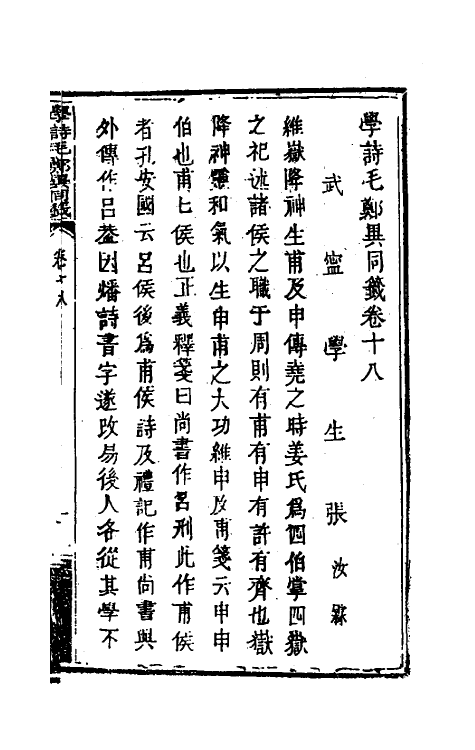 學詩毛鄭異同籤卷十八
武寍學生張汝霖
維嶽降神生甫及申傳堯之時姜氏爲四伯掌四嶽
之祀述諸侯之職于周則有甫有申有許有齊也嶽
降神靈和氣以生申甫之大功維申及甫箋云申申
伯也甫甫侯也正義釋箋曰尚書作呂刑此作甫侯
者孔安國云呂侯後爲甫侯詩及禮記作甫尚書與
外傳作呂葢因燔詩書字遂改易後人各從其學不
學詩毛鄭異同籤
卷十八
一